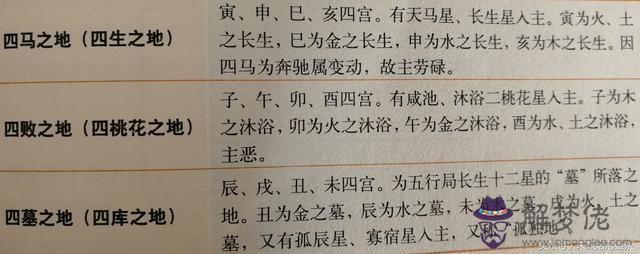 四马之地（四生之地）
寅、申、巳、亥四宫。有天马星、长生星入主。寅为火、土
之长生，巳为金之长生，申为水之长生，亥为木之长生。因
四马为奔驰属变动，故主劳碌。
四败之地（四桃花之地）
子、午、卯、酉四宫。有咸池、沐浴二桃花星入主。子为木
之沐浴，卯为火之沐浴，午为金之沐浴，酉为水、土之沐浴，
主恶。
四墓之地（四库之地）
辰、戌、丑、未四宫。为五行局长生十二星的“墓”所落之
地。丑为金之墓，辰为水之墓，未为木之墓，戌为火、土之
墓，又有孤辰星、寡宿星入主，又称“孤独地
解梦佬